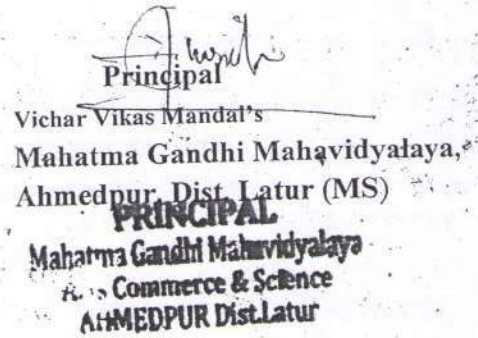 Principal
Vichar Vikas Mandal's
Mahatma Gandhi Mahavidyalaya,
Ahmedpur, Dist. Latur (MS)
PRINCIPAL
Mahatma Gandhi Mahavidyalaya
Commerce & Science
AHMEDPUR Dist.Latur